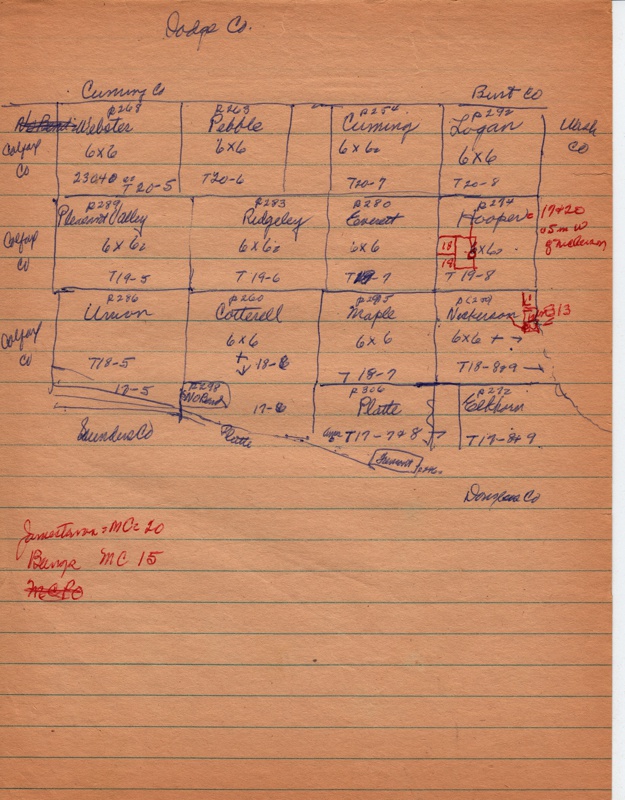 Dodge Co.
Cuming Co
Burt Co
p268
p263
p254
p292
Webster
Pebble
Cuming
Logan
Wash
Co
Colfax
Co
6x6
6x6
6x6
6x6
23040
T20-5
T20-6
T20-7
T20-8
p289
p283
p280
p274
Pleasant Valley
Ridgeley
Everett
Hooper
17+20
Colfax
Co
6x6
6x6
6x6
18
6x6
.05 m W
of Nickerson
T19-5
T19-6
T19-7
19
T19-8
p286
p260
p295
Union
Cotterell
Maple
Nickerson
Colfax
Co
6x6
6x6
6x6 + →
T18-5
18-6
T18-7
T18-8&9 →
17-5
p298
No Bend
17-6
p306
Platte
T17-7&8
p272
Elkhorn
T17-8&9
Saunders Co
Platte
Fremont
Douglas Co
Jamestown = MC = 20
MC 15
MC PO